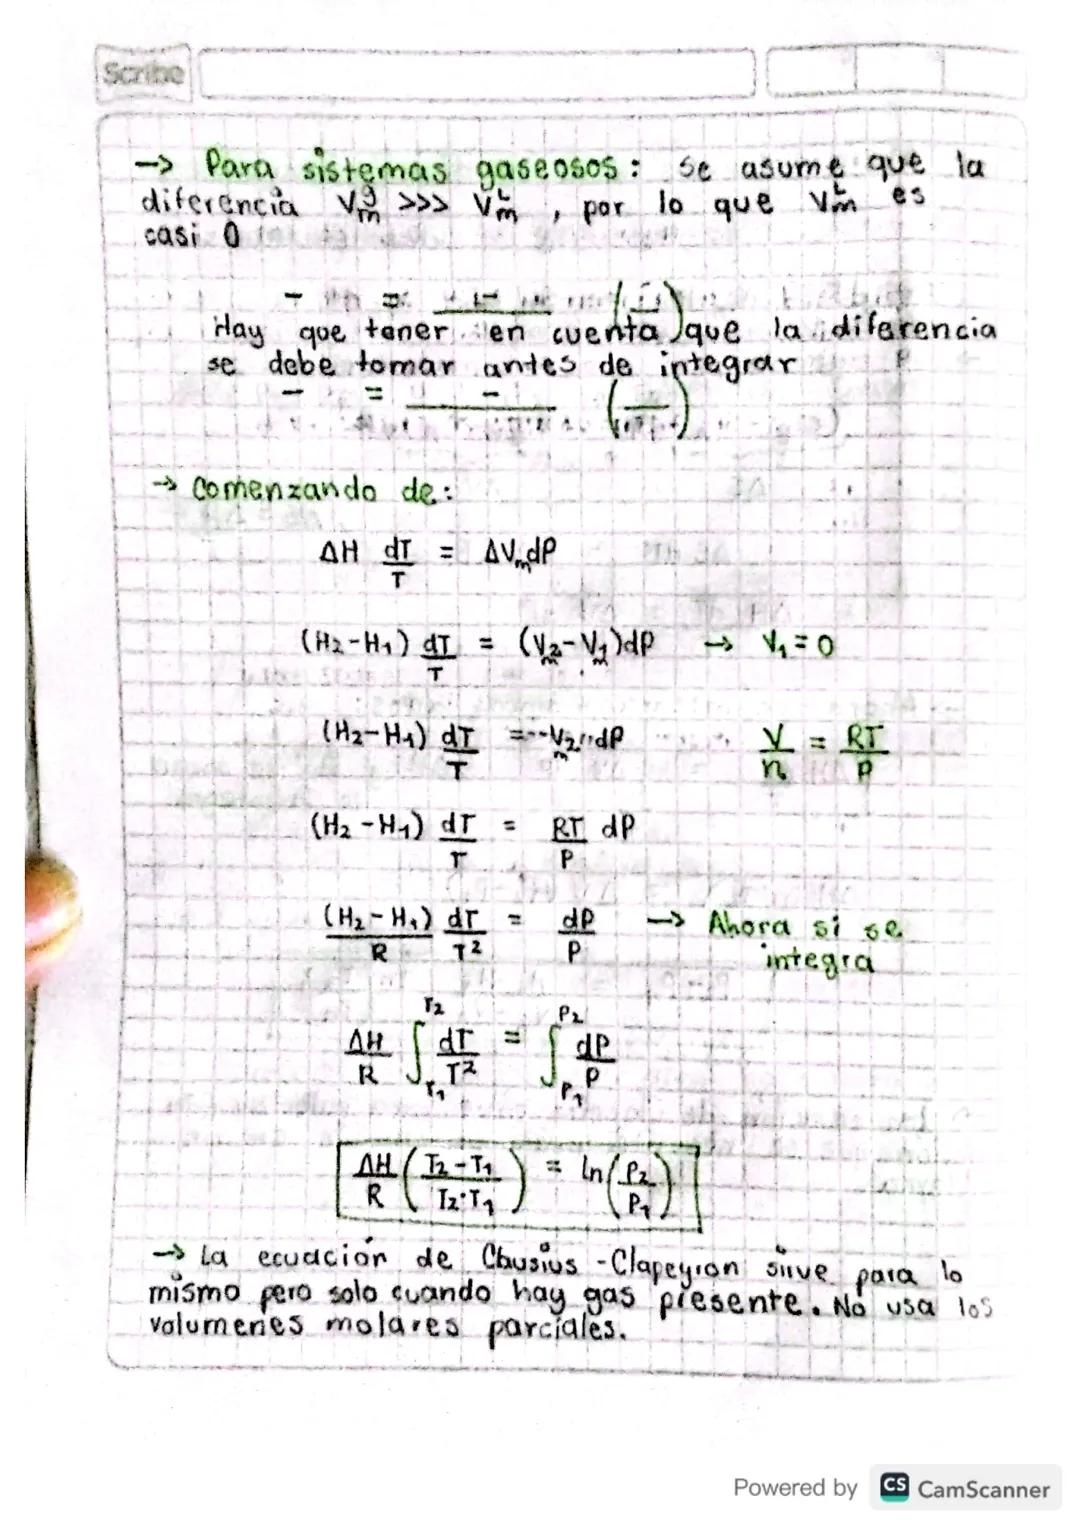 Scribe
→ Para sistemas gaseosos: se asume que la
diferencia Vₘᵍ >>> Vₘᴸ, por lo que Vₘᴸ es
casi 0
Hay que tener en cuenta que la diferencia
se debe tomar antes de integrar
→ Comenzando de:
ΔH dT/T = ΔVₘdP
(H₂-H₁) dT/T = (V₂ₘ-V₁ₘ)dP → V₁=0
(H₂-H₁) dT/T = V₂ₘ dP V/n = RT/P
(H₂-H₁) dT/T = RT/P dP
(H₂-H₁)/R dT/T² = dP/P → Ahora si se
integra
ΔH/R ∫_T₁^T₂ dT/T² = ∫_P₁^P₂ dP/P
ΔH/R (T₂-T₁/T₂·T₁) = ln(P₂/P₁)
→ La ecuación de Clausius-Clapeyron sirve para lo
mismo pero solo cuando hay gas presente. No usa los
volumenes molares parciales.
Powered by CS CamScanner